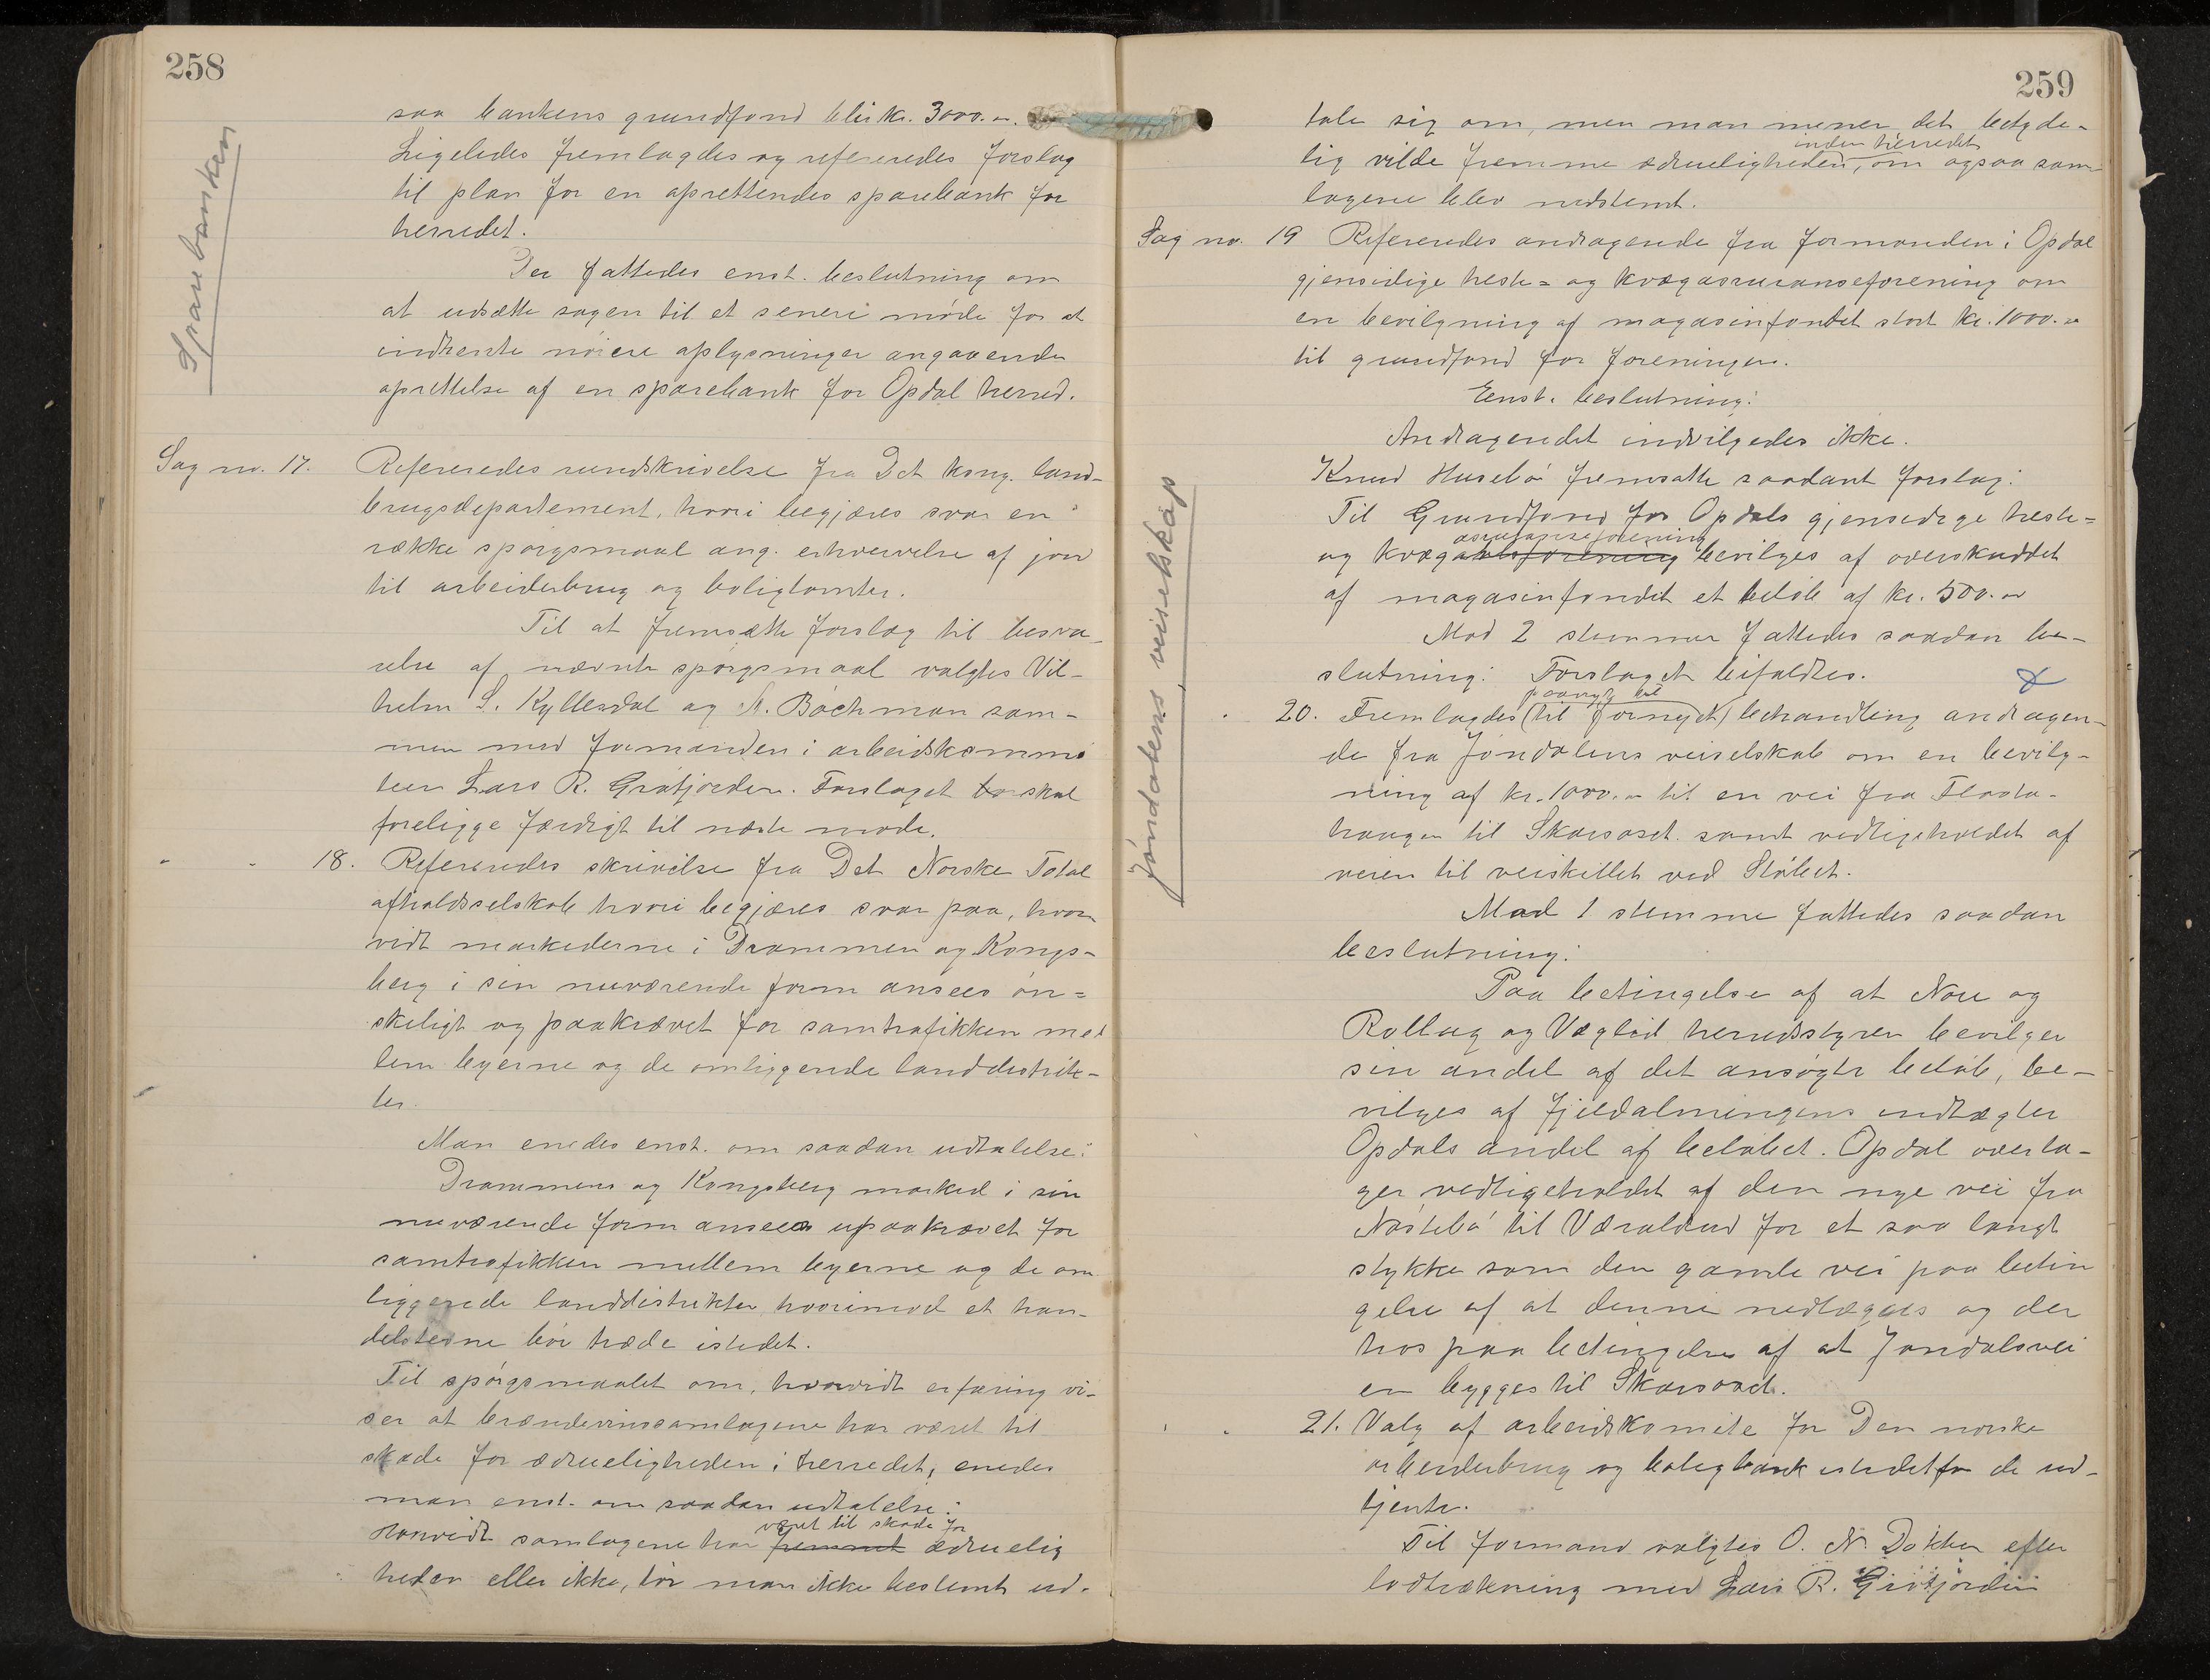 258
Sparebanken
saa bankens grundfond blir kr. 3000.00.
Ligeledes fremlagdes og refereredes forslag
til plan for en oprettendes sparebank for
herredet.
Der fattedes enst. beslutning om
at udsætte sagen til et senere møde for at
indhente nøiere oplysninger angaaende
oprettelse af en sparebank for Opdal herred.
Sag no. 17. Refereredes rundskrivelse fra Det kong. land-
brugsdepartement, hvori begjæres svar en
række spørgsmaal ang. erhvervelse af jord
til arbeiderbrug og boligtomter.
Til at fremsætte forslag til besva-
relse af nævnte spørgsmaal valgtes Vil-
helm S. Kyllesdal og A. Bøchman sam-
men med formanden i arbeidskommi
teen Lars R. Grøtjorden. Forslaget skal
foreligge færdigt til næste møde.
" " 18. Refereredes skrivelse fra Det Norske Total
afholdsselskab hvori begjæres svar paa, hvor
vidt markederne i Drammen og Kongs-
berg i sin nuværende form ansees øn-
skeligt og paakrævet for samtrafikken mel
lem byerne og de omliggende landdistrik-
ter.
Man enedes enst. om saadan udtalelse:
Drammens og Kongsberg marked i sin
nuværende form ansees upaakrævet for
samtrafikken mellem byerne og de om
liggende landdistrikter hvorimod et han-
delsstevne bør træde istedet.
Til spørgsmaalet om, hvorvidt erfaring vi-
ser at brændevinssamlagene har været til
skade for ædrueligheden i herredet, enedes
man enst. om saadan udtalelse:
været til skade for
Hvorvidt samlagene har fremmet ædruelig
heden eller ikke, tør man ikke bestemt ud-
259
tale sig om, men man mener det betyde-
inden herredet
lig vilde fremme ædrueligheden, om ogsaa sam-
lagene blev nedstemt.
Sag no. 19 Refereredes andragende fra formanden i Opdal
gjensidige heste- og kvægassuranseforening om
en bevilgning af magasinfondet stort kr. 1000.00
til grundfond for foreningen.
Enst. beslutning:
Andragendet indvilgedes ikke.
Knud Husebø fremsatte saadant forslag:
Til Grundfond for Opdals gjensidige heste-
assuranseforening
og kvægavlsforening bevilges af overskuddet
af magasinfondet et beløb af kr. 500.00
Mod 2 stemmer fattedes saadan be-
slutning: Forslaget bifaldtes.
Jøndalens veiselskap
paany til
" 20. Fremlagdes (til fornyet) behandling andragen-
de fra Jøndalens veiselskab om en bevilg-
ning af kr. 1000.00 til en vei fra Flaata-
haugen til Skarsaset samt vedligeholdet af
veien til veiskillet ved Stølect.
Mod 1 stemme fattedes saadan
beslutning:
Paa betingelse af at Nore og
Rollag og Veglid herredsstyrer bevilger
sin andel af det ansøgte beløb, be-
vilges af fjeldalmingens indtægter
Opdals andel af beløbet. Opdal overta-
ger vedligeholdet af den nye vei fra
Nøstebø til Væraldrud for et saa langt
stykke som den gamle vei paa betin
gelse af at denne nedlægges og der
hos paa betingelse af at Jøndalsvei
en bygges til Skarsaset.
" " 21. Valg af arbeidskomite for Den norske
arbeiderbrug og boligbank istedetfor de ud-
tjente.
Til formand valgtes O. N. Dokken efter
lodtrækning med Lars R. Grøtjorden